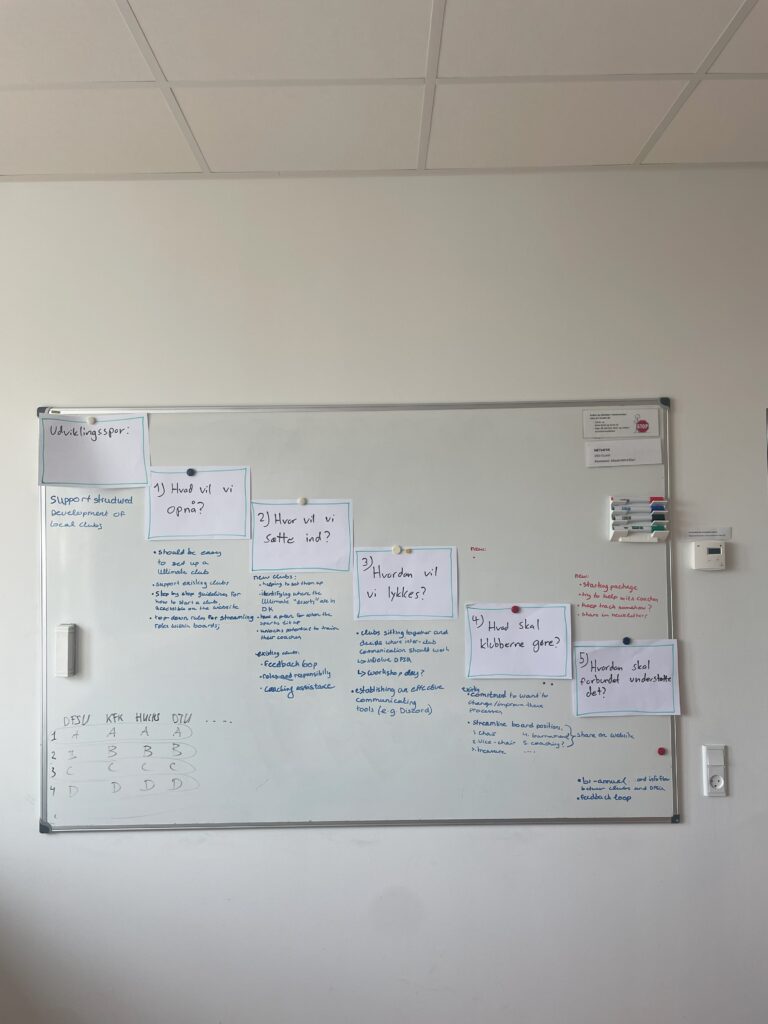 Udviklingsspor:
Support structured
Development of
local clubs
1) Hvad vil vi
opnå?
• should be easy
to set up a
Ultimate club
• support existing clubs
• Step by step guidelines for
how to start a club,
accessible on the website
• top down rules for streamlining
roles within boards,
2) Hvor vil vi
sætte ind?
new clubs:
• helping to set them up
• identifying where the
Ultimate "deserts" are in
DK
• have a plan for when the
sports
potential to train
their coaches
existing
• feedback loop
• roles and responsibility
• coaching assistance
3) Hvordan vil
vi lykkes?
• clubs sitting together and
decide where inter-club
communication should work
↳ involve DFSU
↳ workshop day?
• establishing an effective
communicating
tools (e.g. Discord)
New:
4) Hvad skal
klubberne gøre?
• commited to want to
change/improve their
processes
• Streamline board positions,
1. Chair 4. tournament
2. Vice-chair 5. coaching?
3. treasure ....
share on website
new:
• Starting package
• try to help with coaches
• keep track somehow?
• share in newsletter
5) Hvordan skal
forbundet understøtte
det?
• bi-annual and info flow
between clubs and DFSU
• feedback loop
DFSU KFK HUCKS DTU ....
1 A A A A
2 B B B
3 C C C C
4 D D D D
STOP